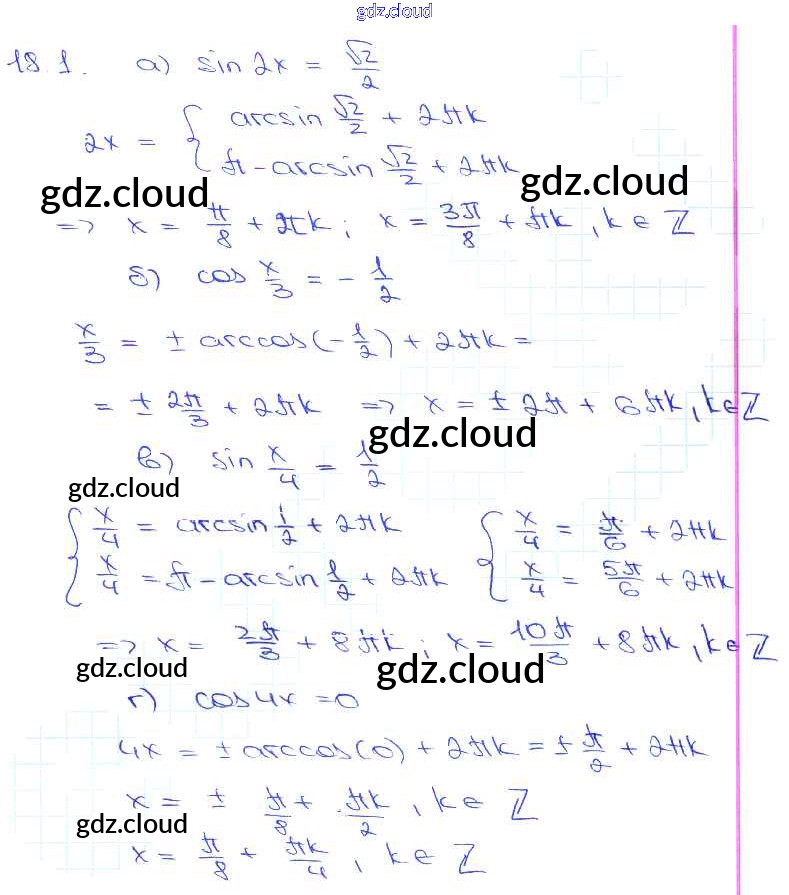 gdz.cloud
18.1. а) sin 2x = √2/2
2x = { arcsin √2/2 + 2πk
π - arcsin √2/2 + 2πk
gdz.cloud gdz.cloud
=> x = π/8 + πk; x = 3π/8 + πk, k ∈ Z
б) cos x/3 = - 1/2
x/3 = ± arccos(-1/2) + 2πk =
= ± 2π/3 + 2πk => x = ± 2π + 6πk, k ∈ Z
gdz.cloud
в) sin x/4 = 1/2
gdz.cloud
{ x/4 = arcsin 1/2 + 2πk { x/4 = π/6 + 2πk
x/4 = π - arcsin 1/2 + 2πk x/4 = 5π/6 + 2πk
=> x = 2π/3 + 8πk; x = 10π/3 + 8πk, k ∈ Z
gdz.cloud gdz.cloud
г) cos 4x = 0
4x = ± arccos(0) + 2πk = ± π/2 + 2πk
x = ± π/8 + πk/2, k ∈ Z
gdz.cloud gdz.cloud
x = π/8 + πk/4, k ∈ Z